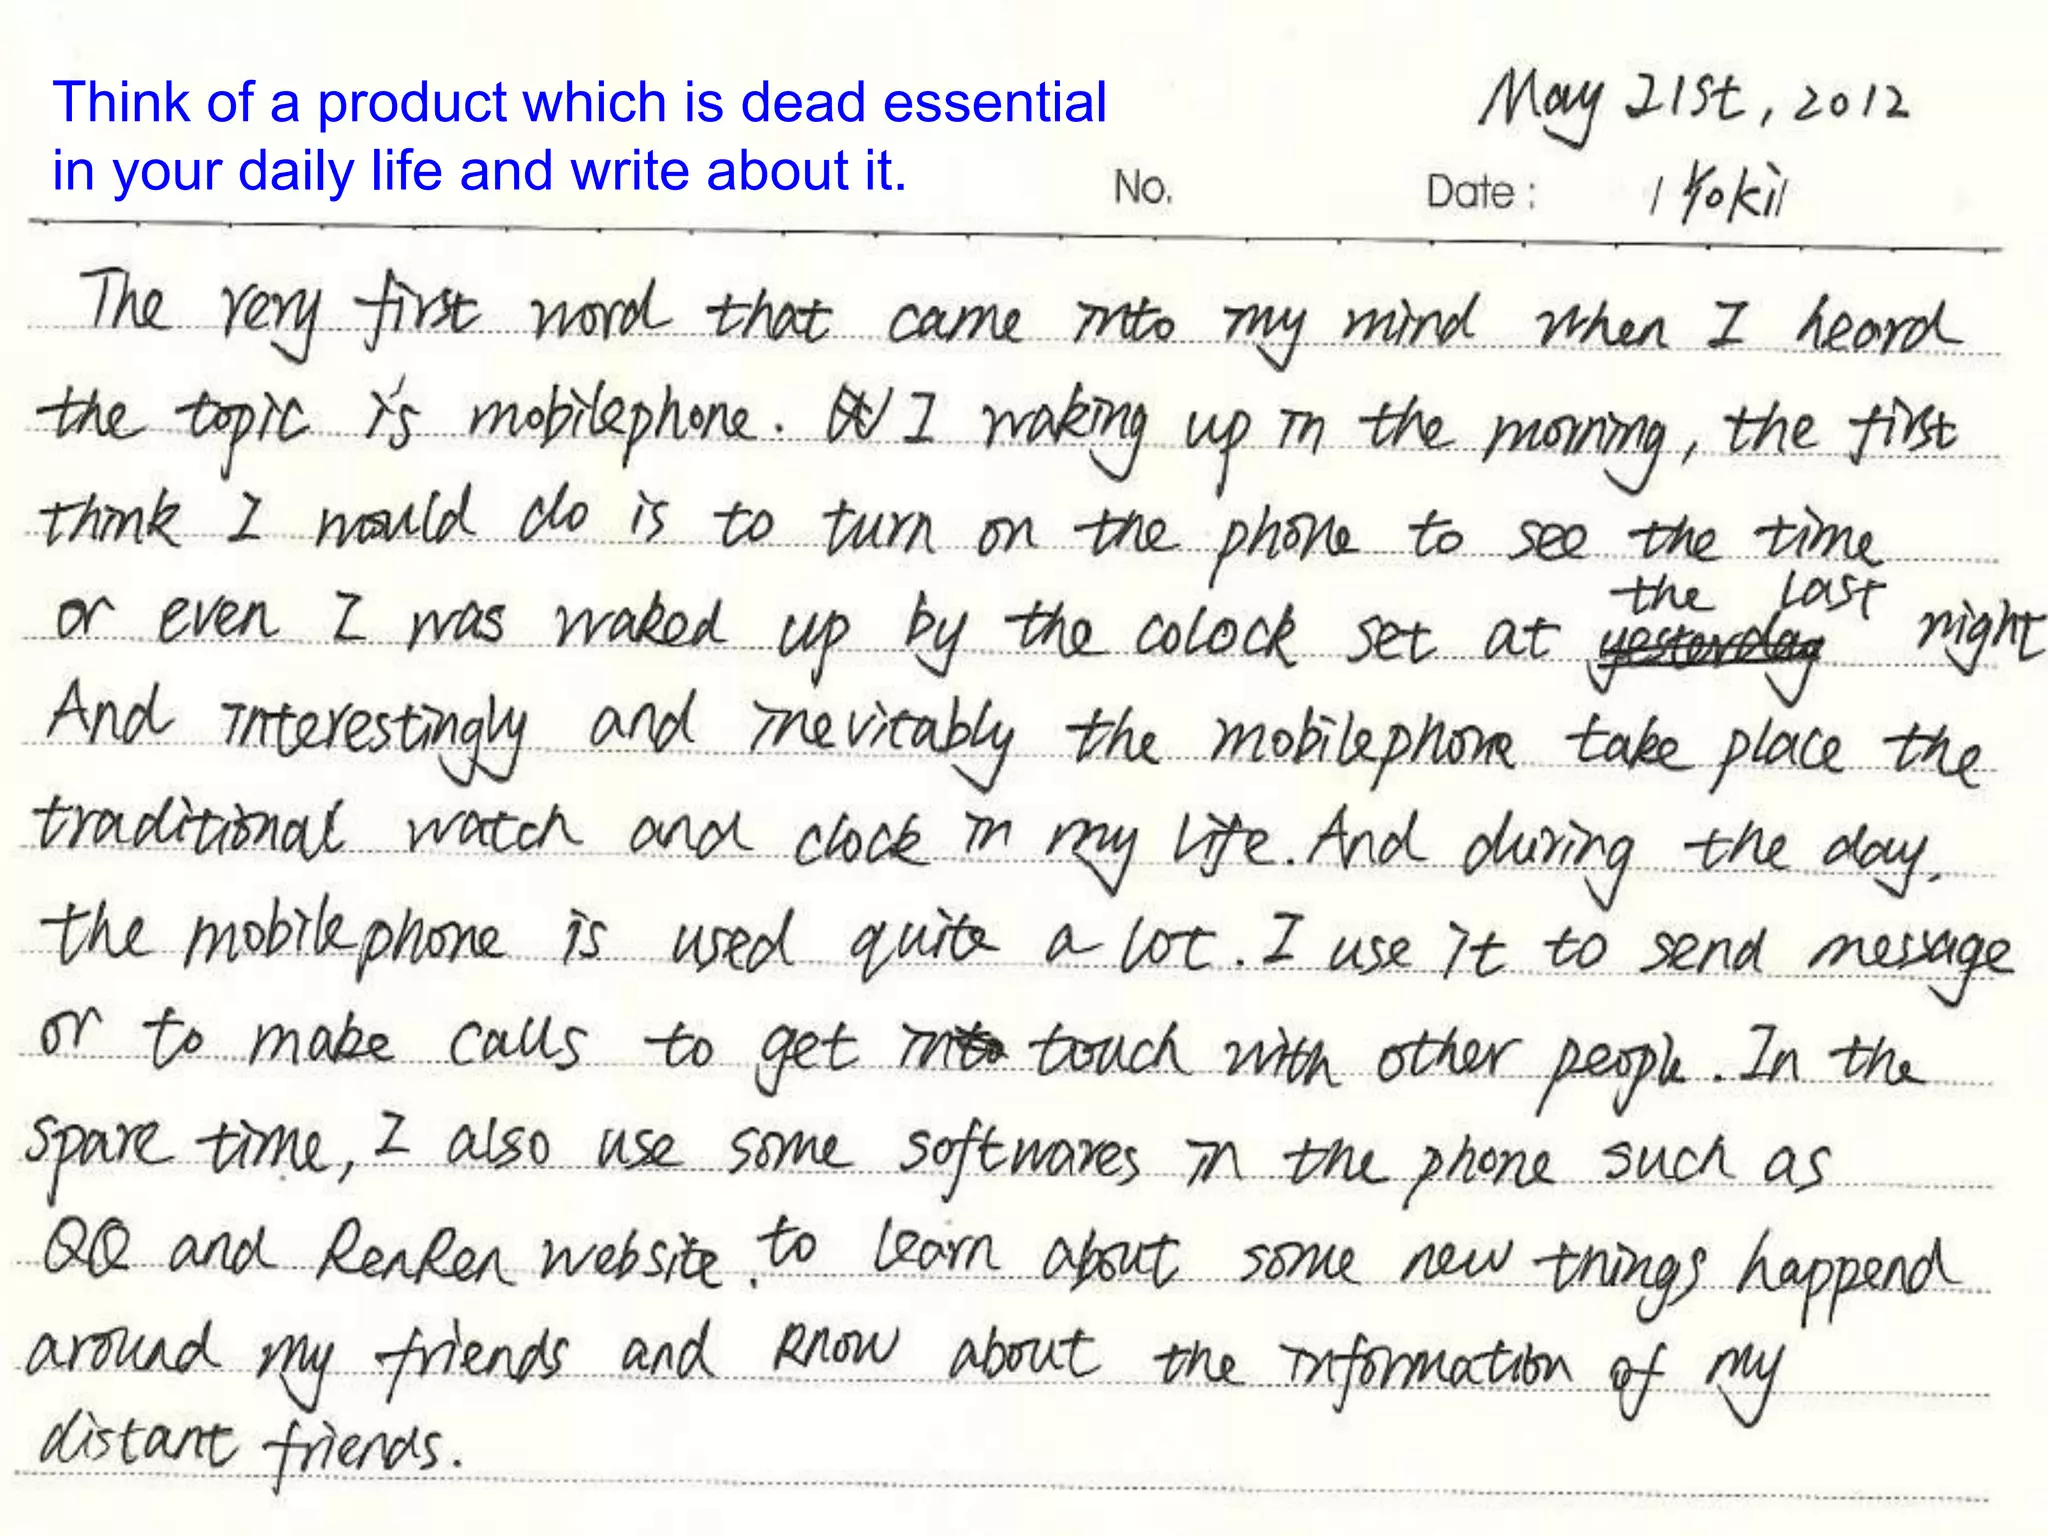 Think of a product which is dead essential
in your daily life and write about it.
May 21st, 2012
No. Date: Yokii
The very first word that came into my mind when I heard
the topic is mobilephone. I waking up in the morning, the first
think I would do is to turn on the phone to see the time
or even I was waked up by the colock set at the last night
And interestingly and inevitably the mobilephone take place the
traditional watch and clock in my life. And during the day,
the mobilephone is used quite a lot. I use it to send message
or to make calls to get in touch with other people. In the
spare time, I also use some softwares in the phone such as
QQ and RenRen website. to learn about some new things happend
around my friends and know about the information of my
distant friends.